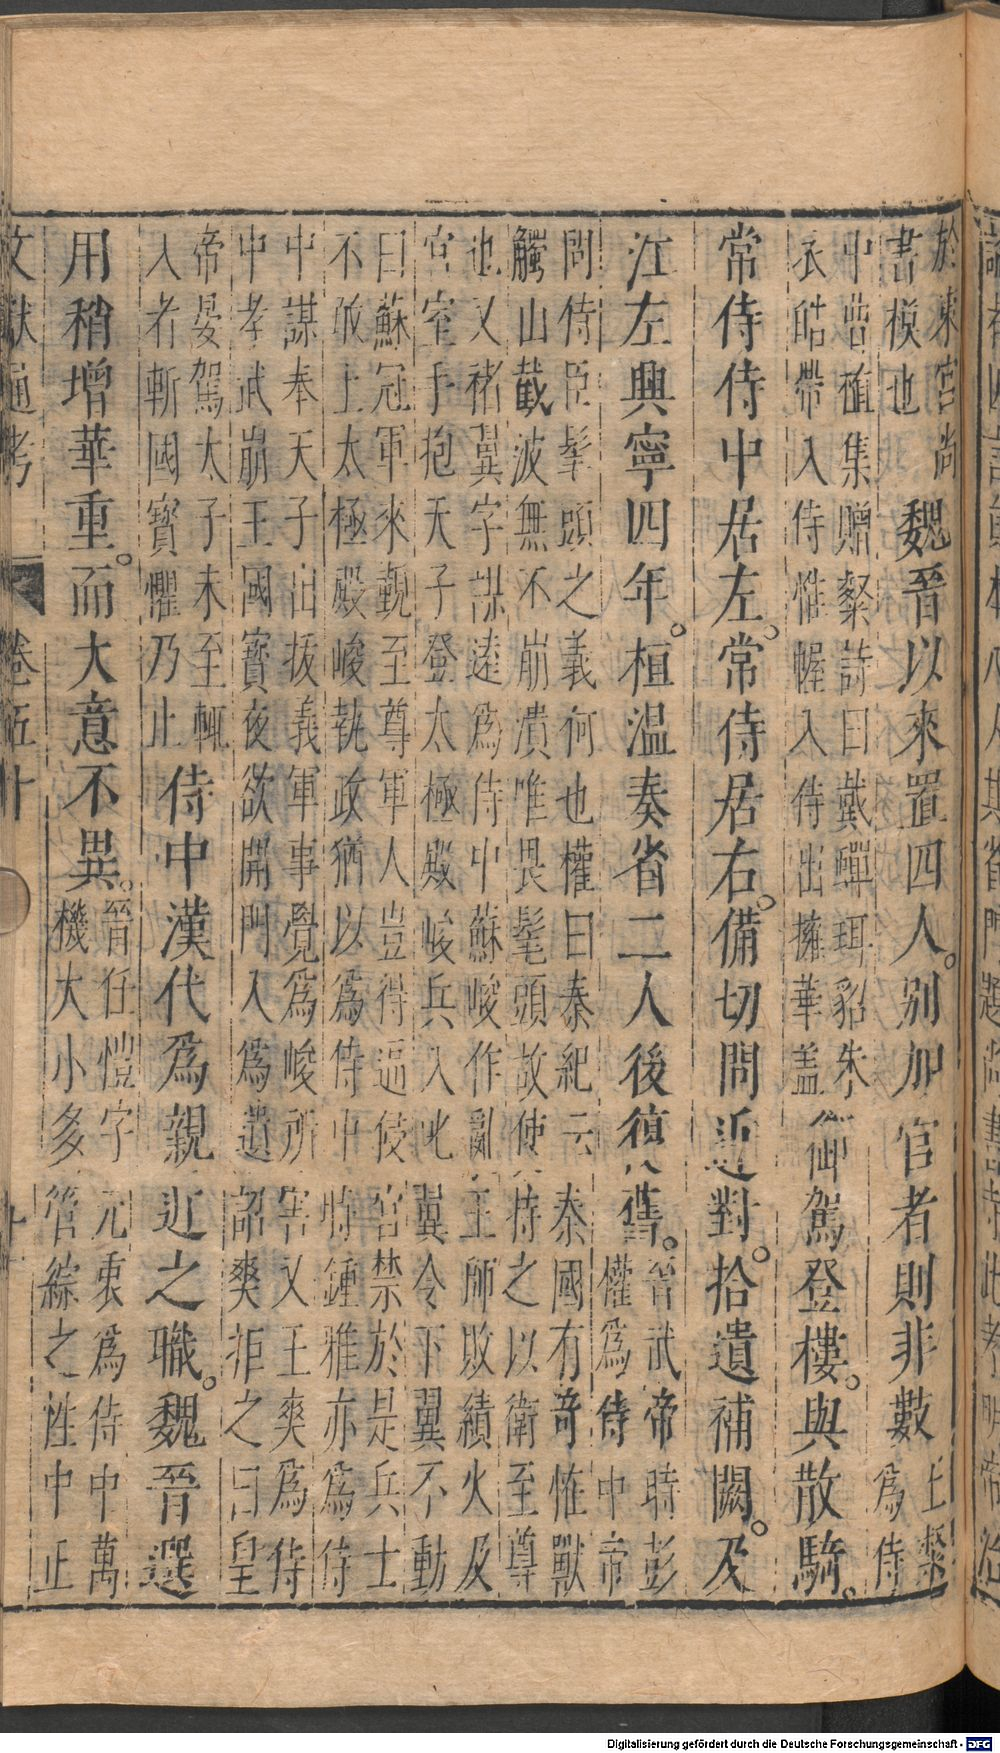 於東宮尚
書模也
魏晉以來置四人。別加官者則非數
王粲
為侍
中曹植集贈粲詩曰戴蟬珥貂朱
衣皓帶入侍帷幄入侍出擁華盖
御駕登樓。與散騎。
常侍侍中居左。常侍居右。備切問近對。拾遺補闕。及
江左興寧四年。桓溫奏省二人後復舊。
晉武帝時彭
權為侍中帝
問侍臣髦頭之義何也權曰秦紀云秦國有奇怪獸
觸山截波無不崩潰唯畏髦頭故使持之以衛至尊
也又褚翼字謀遠為侍中蘇峻作亂王師敗績火及
宮室手抱天子登太極殿峻兵入叱翼令下翼不動
曰蘇冠軍來覲至尊軍人豈得逼侵宮禁於是兵士
不敢上太極殿峻執政猶以為侍中時鍾雅亦為侍
中謀奉天子出㧞義軍事覺為峻所害又王爽為侍
中孝武崩王國寶夜欲開門入為遺詔爽拒之曰皇
帝晏駕太子未至輒
入者斬國寶懼乃止
侍中漢代為親近之職。魏晉選
用稍增華重。而大意不異。
晉任愷字元裒為侍中萬
機大小多管綜之性中正
文獻通考 卷五十 十
Digitalisierung gefördert durch die Deutsche Forschungsgemeinschaft - DFG